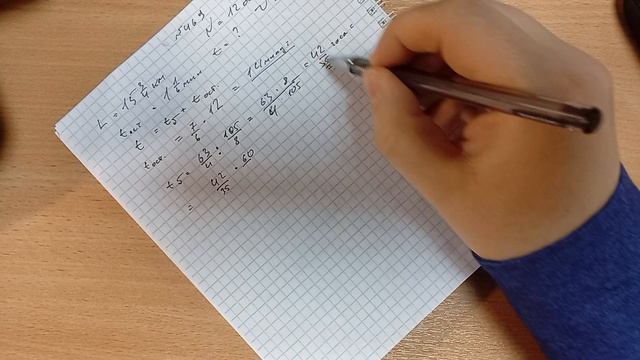 №463
N = 12
L = 15 3/4 км
t = ?
tост. = 1 1/6 мин
t = tб + tост.
tост. = 7/6 · 12 = 14 минут
tб = 63/4 : 105/8 = 63 · 8 / 4 · 105 = 42/35 часа =
= 42/35 · 60